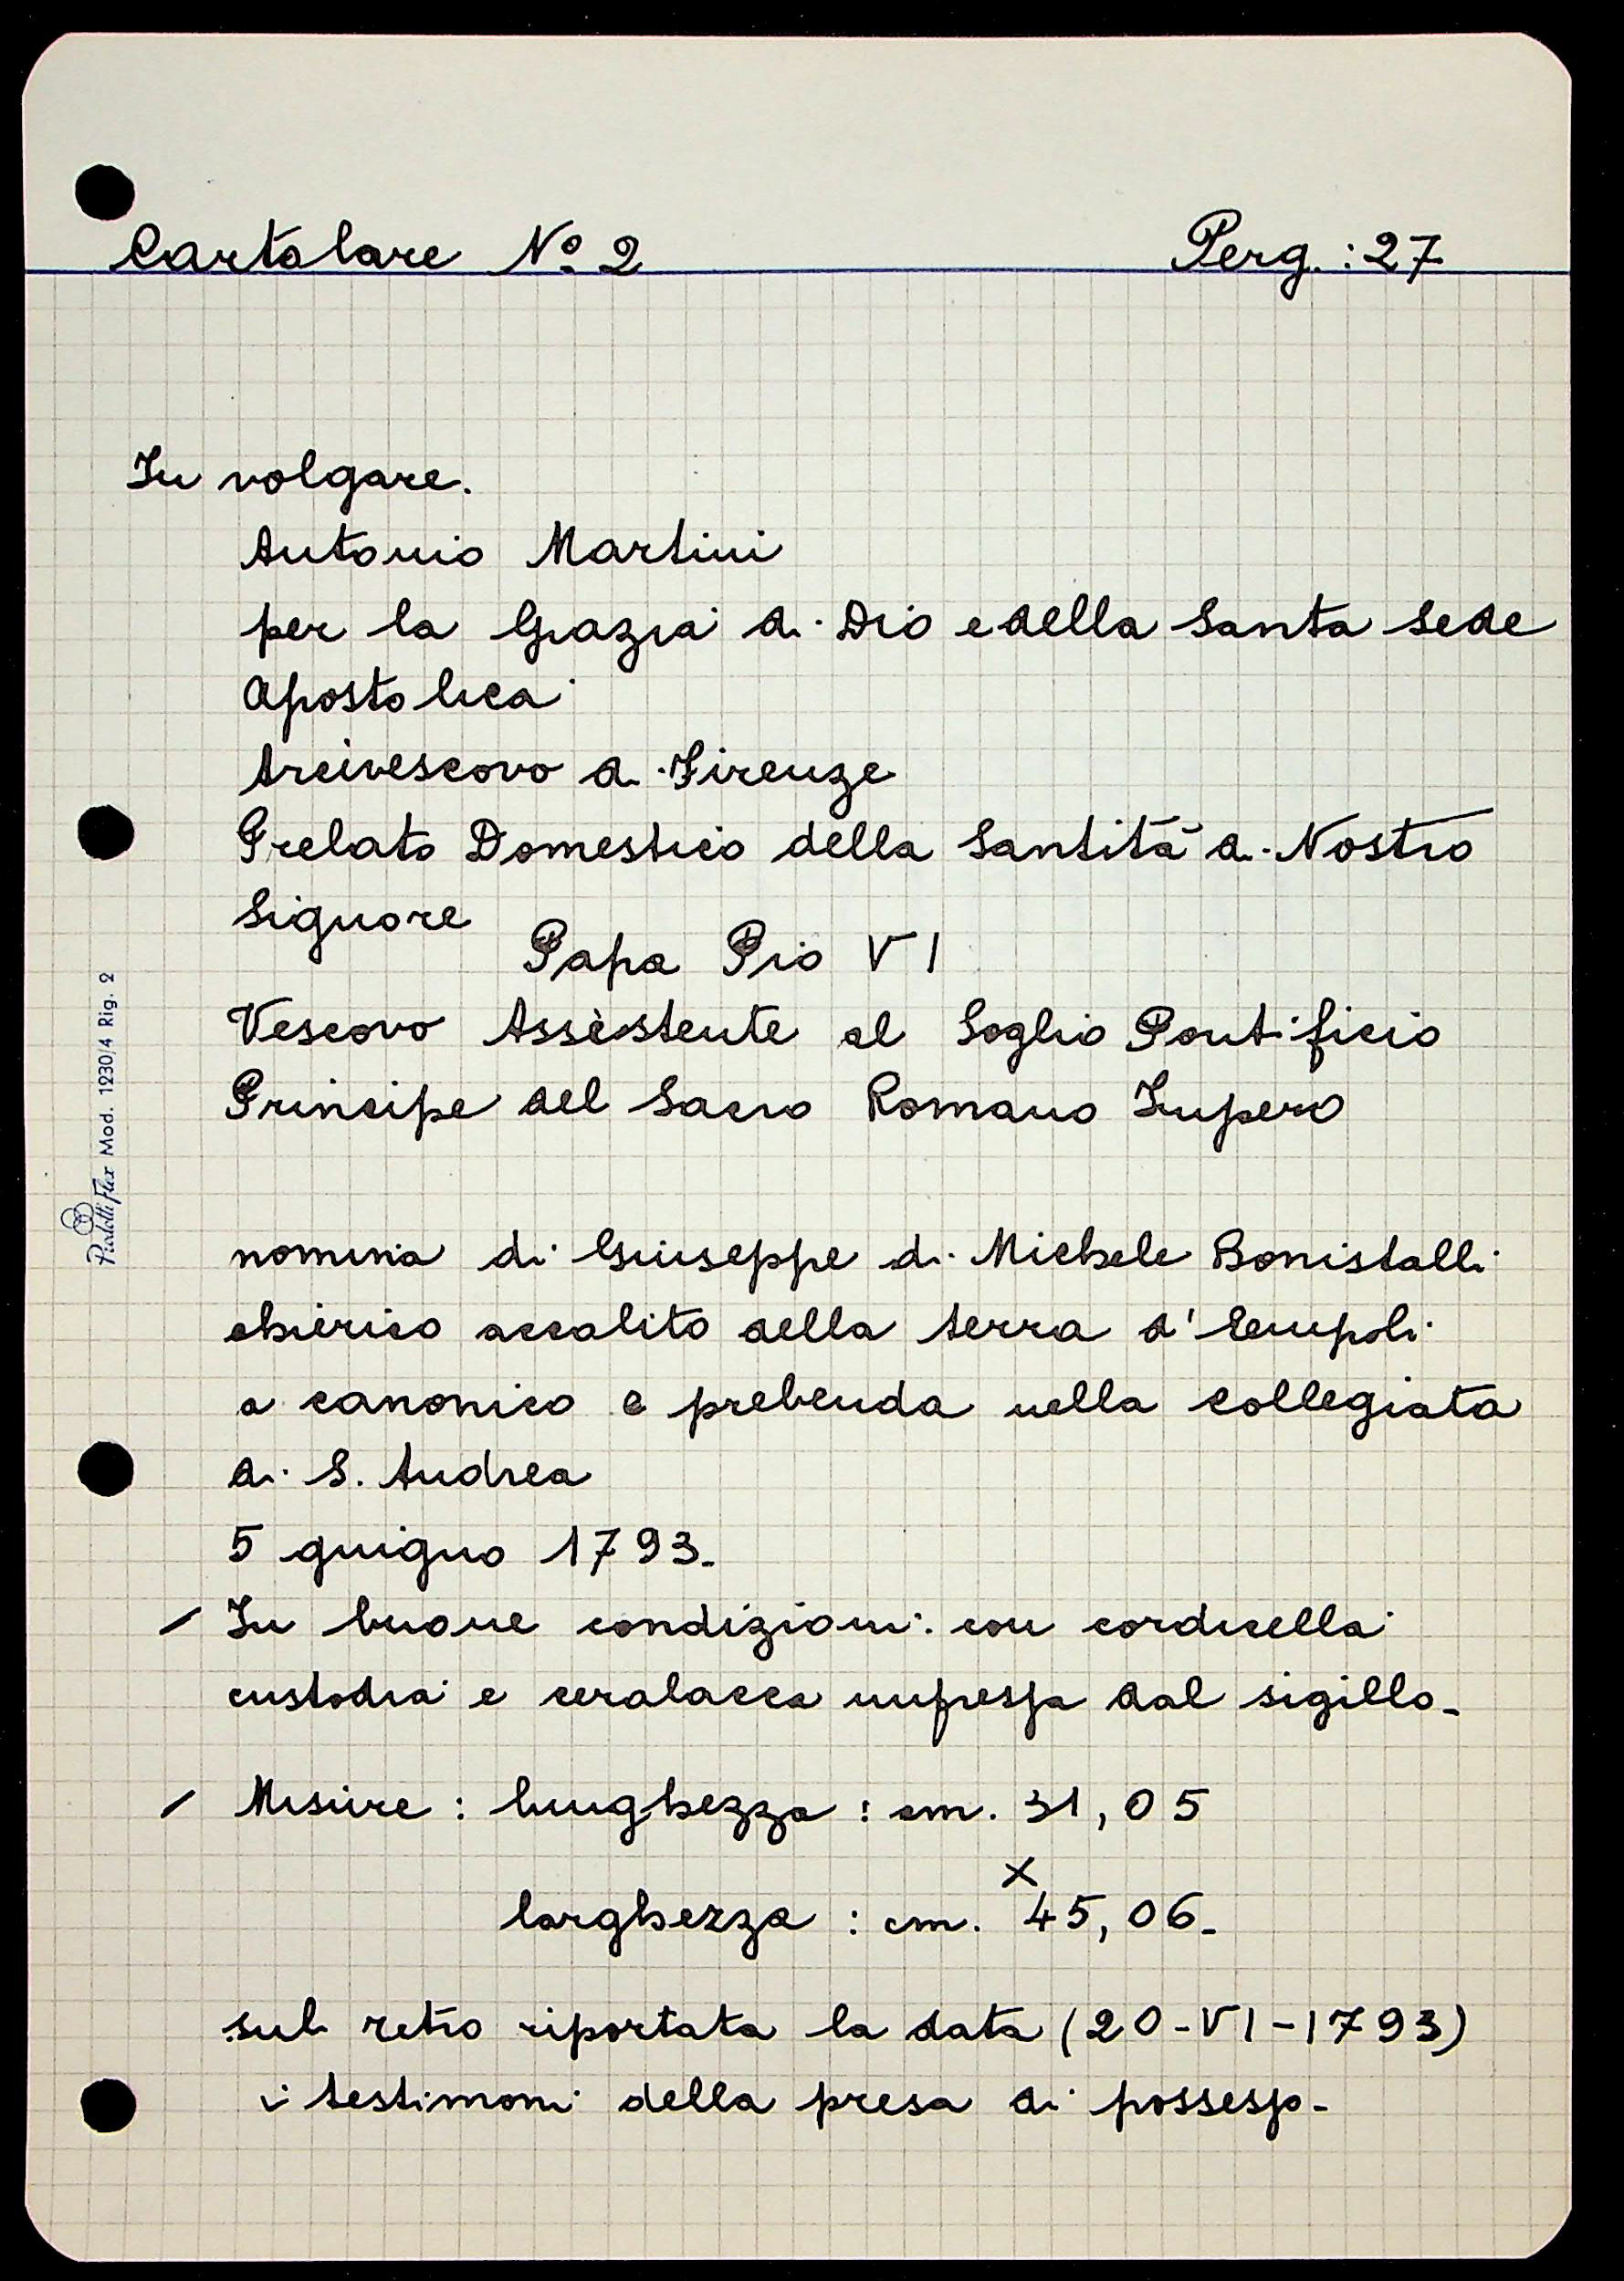 Cartolare Nº 2 Perg.: 27
In volgare.
Antonio Martini
per la Grazia di Dio e della Santa Sede
Apostolica
Arcivescovo di Firenze
Prelato Domestico della Santità di Nostro
Signore
Papa Pio VI
Vescovo Assistente al Soglio Pontificio
Principe del Sacro Romano Impero
nomina di Giuseppe di Michele Bonistalli
chierico accolito della terra d'Empoli
a canonico e prebenda nella collegiata
di S. Andrea
5 giugno 1793.
/ In buone condizioni con cordicella
custodia e ceralacca impressa dal sigillo.
/ Misure: lunghezza: cm. 31,05
x
larghezza: cm. 45,06.
sul retro riportata la data (20-VI-1793)
i testimoni della presa di possesso.
Mod. 1230/4 Rig. 2